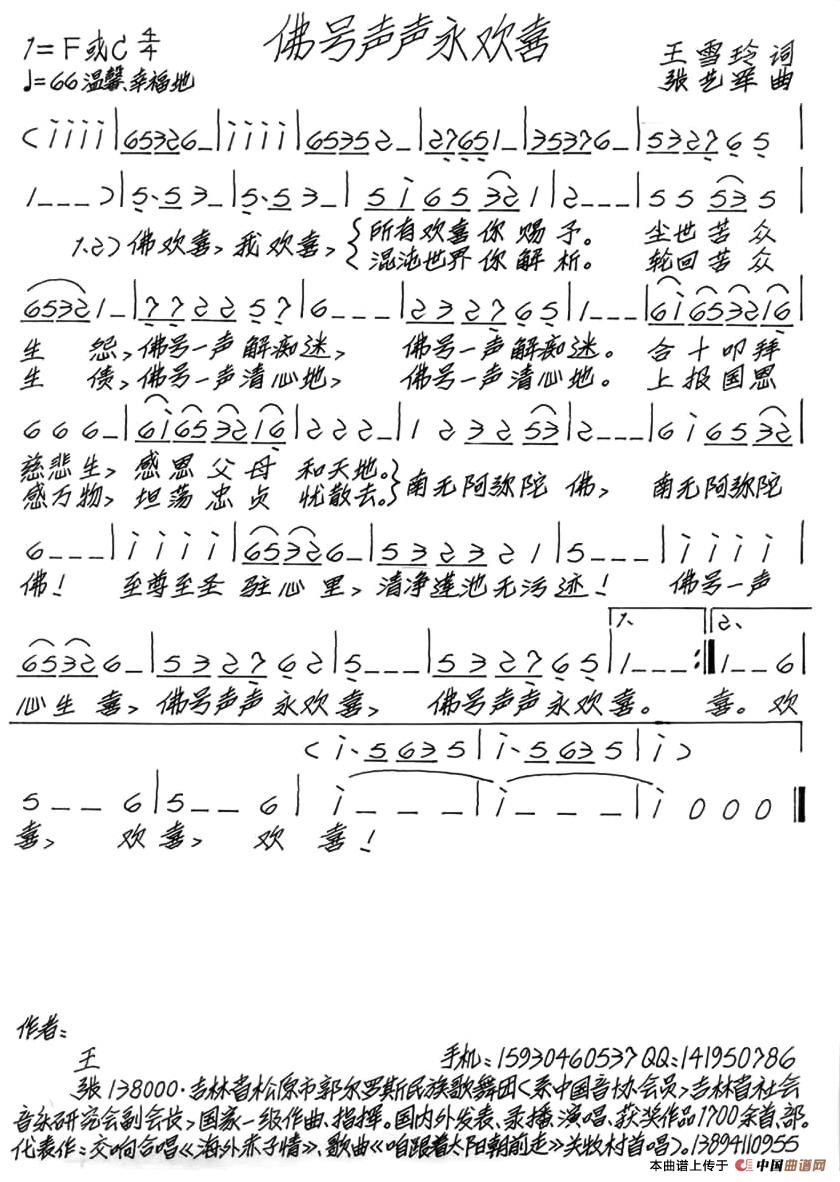 佛号声声永欢喜
1=F或C 4/4
王雪玲 词
♩=66 温馨、幸福地
张艺军 曲
(i i i i | 65326_ | i i i i | 65352_ | 27651_ | 353276_ | 5327 6 5 |
1 _ _ _ ) | 5·5 3 _ | 5·5 3 _ | 5 i 6 5 32 1 | 2 _ _ _ | 5 5 53 5 |
1.2) 佛欢喜, 我欢喜, { 所有欢喜你赐予。 尘世苦众
混沌世界你解析。 轮回苦众
6532 1 _ | 7 7 2 2 5 7 | 6 _ _ _ | 2 3 2 7 6 5 | 1 _ _ _ | 6i 65 32 16 |
生 怨, 佛号一声解痴迷, 佛号一声解痴迷。 合十叩拜
生 债, 佛号一声清心地, 佛号一声清心地。 上报国恩
6 6 6 _ | 6i 65 32 16 | 2 2 2 _ | 1 2 3 2 53 | 2 _ _ _ | 6 i 6 5 32 |
慈悲生, 感恩父母 和天地。} 南无阿弥陀 佛, 南无阿弥陀
感万物, 坦荡忠贞 忧散去。
6 _ _ _ | i i i i | 65326_ | 5 3 2 3 2 1 | 5 _ _ _ | i i i i |
佛! 至尊至圣 驻心里, 清净莲池无污迹! 佛号一声
1、 2、
65326_ | 5 3 2 7 6 2 | 5 _ _ _ | 5 3 2 7 6 5 | 1 _ _ _ :| 1 _ _ 6 |
心生喜, 佛号声声永欢喜, 佛号声声永欢喜。 喜。欢
( i·5 6 3 5 | i·5 6 3 5 | i )
5 _ _ 6 | 5 _ _ 6 | i _ _ _ | i _ _ _ | i 0 0 0 ‖
喜, 欢喜, 欢 喜!
作者:
王 手机:15930460537 QQ:141950786
张 138000·吉林省松原市郭尔罗斯民族歌舞团<系中国音协会员>吉林省社会
音乐研究会副会长>国家一级作曲、指挥。国内外发表、录播、演唱、获奖作品1700余首、部。
代表作:交响合唱《海外赤子情》、歌曲《咱跟着太阳朝前走》关牧村首唱)。13894110955
本曲谱上传于 中国曲谱网